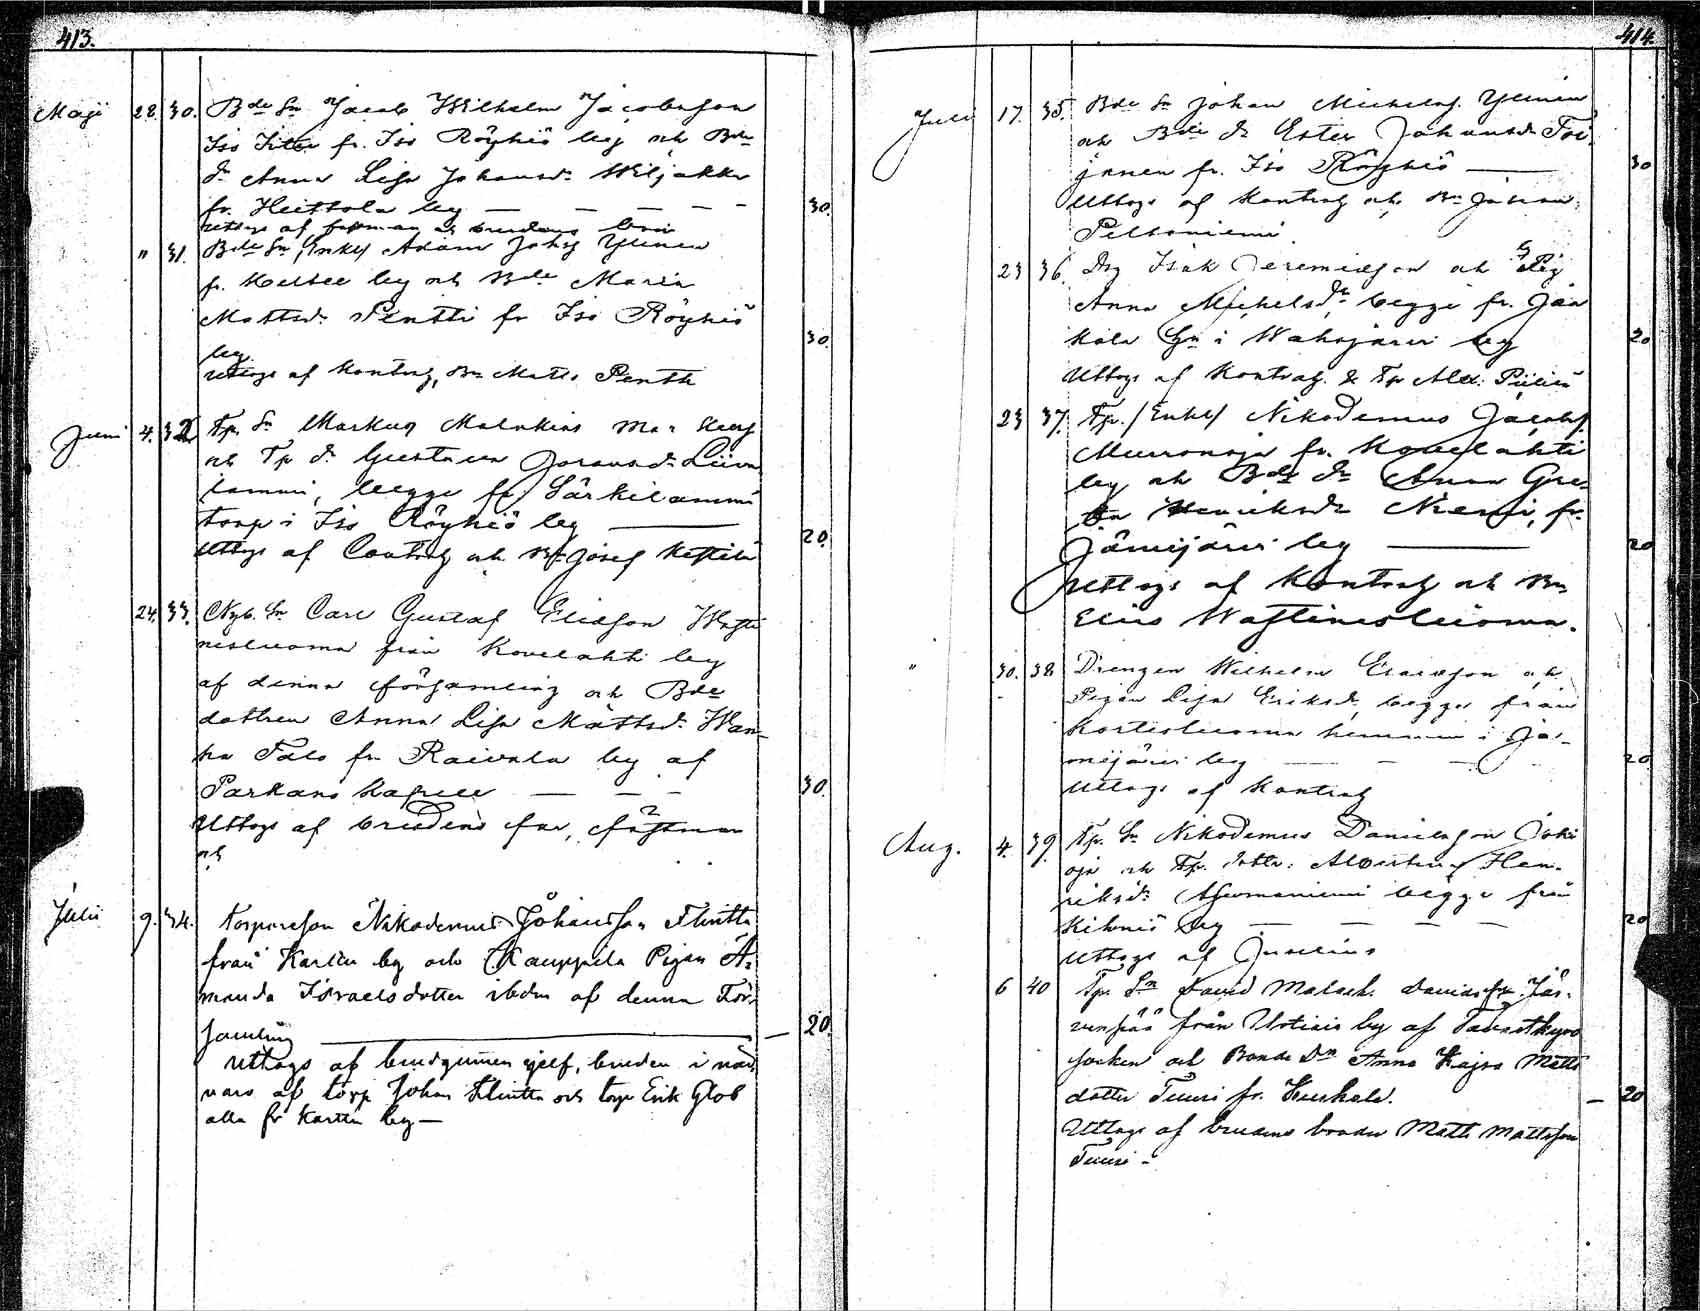 413.
Maji 28. 30. Bde Sn Jacob Wilhelm Jacobsson
Iso fr. Iso Röyhiö by och Bde
Dr Anna Lisa Johansdr Wiljakka
fr. Heittola by — — — — — 30.
uttogs af fästman och brudens bror
" 31. Bde Sn, Enkl Adam Johsf Ylinen
fr. Keltee by och Bde Maria
Mattsdr Pentti fr Iso Röyhiö
by. 30.
uttogs af Kontrah, Bn Matts Pentti
Juni 4. 32. Tp. Sn Markus Malakias
och Tp Dr Gustava Joransdr Liina
lammi, begge fr Särkilammi
torp i Iso Röyhiö by — 20.
Uttogs af Contrah och Bn Josef Kestilä
24. 33. Nyb. Sn Carl Gustaf Eliasson Wasti
nesluoma från Kovelahti by
af denna församling och Bde
dottren Anna Lisa Mattsdr Wan-
ha Talo fr Raivala by af
Parkano Kapell — — — 30.
Uttogs af brudens far, fästman
och
Julii 9. 34. torparesson Nikodemus Johansson Flinta
från Karttu by och Kauppila Pigan A-
manda Israelsdotter ibdm af denna För-
samling — 20.
Uttogs af brudgummen sjelf, bruden i när-
varo af torp Johan Flinta och torp Erik Glob
alla fr Karttu by —
414.
Juli 17. 35. Bde Sn Johan Michelsf. Ylinen
och Bde Dr Ester Johansdr Toi-
janen fr. Iso Röyhiö — 30
Uttogs af Kontrah och Bn Johan
Peltoniemi
23 36. Drg Isak Jeremiasson och Pig
Anna Michelsdr, begge fr. Jän
kälä Gn i Wahojärvi by 20
Uttogs af Kontrah. & Tp Alex:
23 37. Tp. /Enkl/ Nikodemus Jacobsf.
Murronoja fr. Kovelahti
by och Bde Dr Anna Gre-
ta Henriksdr Niemi, fr.
Jämijärvi by — 20
Uttogs af Kontrah och Bn
Elias Wastinesluoma.
" 30. 38 Drengen Wilhelm Esaiasson och
Pigan Lisa Eriksdr, begge från
Kortesluoma hemman i Jä-
mijärvi by — — — 20
Uttogs af Kontrah
Aug. 4. 39. Tp. Sn Nikodemus Danielsson Joki
oja och Tp. dottr: Albertina Hen-
riksdr begge från
Kihniö by — — — — 20
Uttogs af Juselius
6 40 Tp. Sn David Malach. Davidsson Jär-
venpää från by af Tavastkyro
socken och Bonde Dn Anna Kajsa Matts
dotter Tuuri fr. Kuskala. — 20
Uttogs af brudens broder Matts Mattsson
Tuuri -